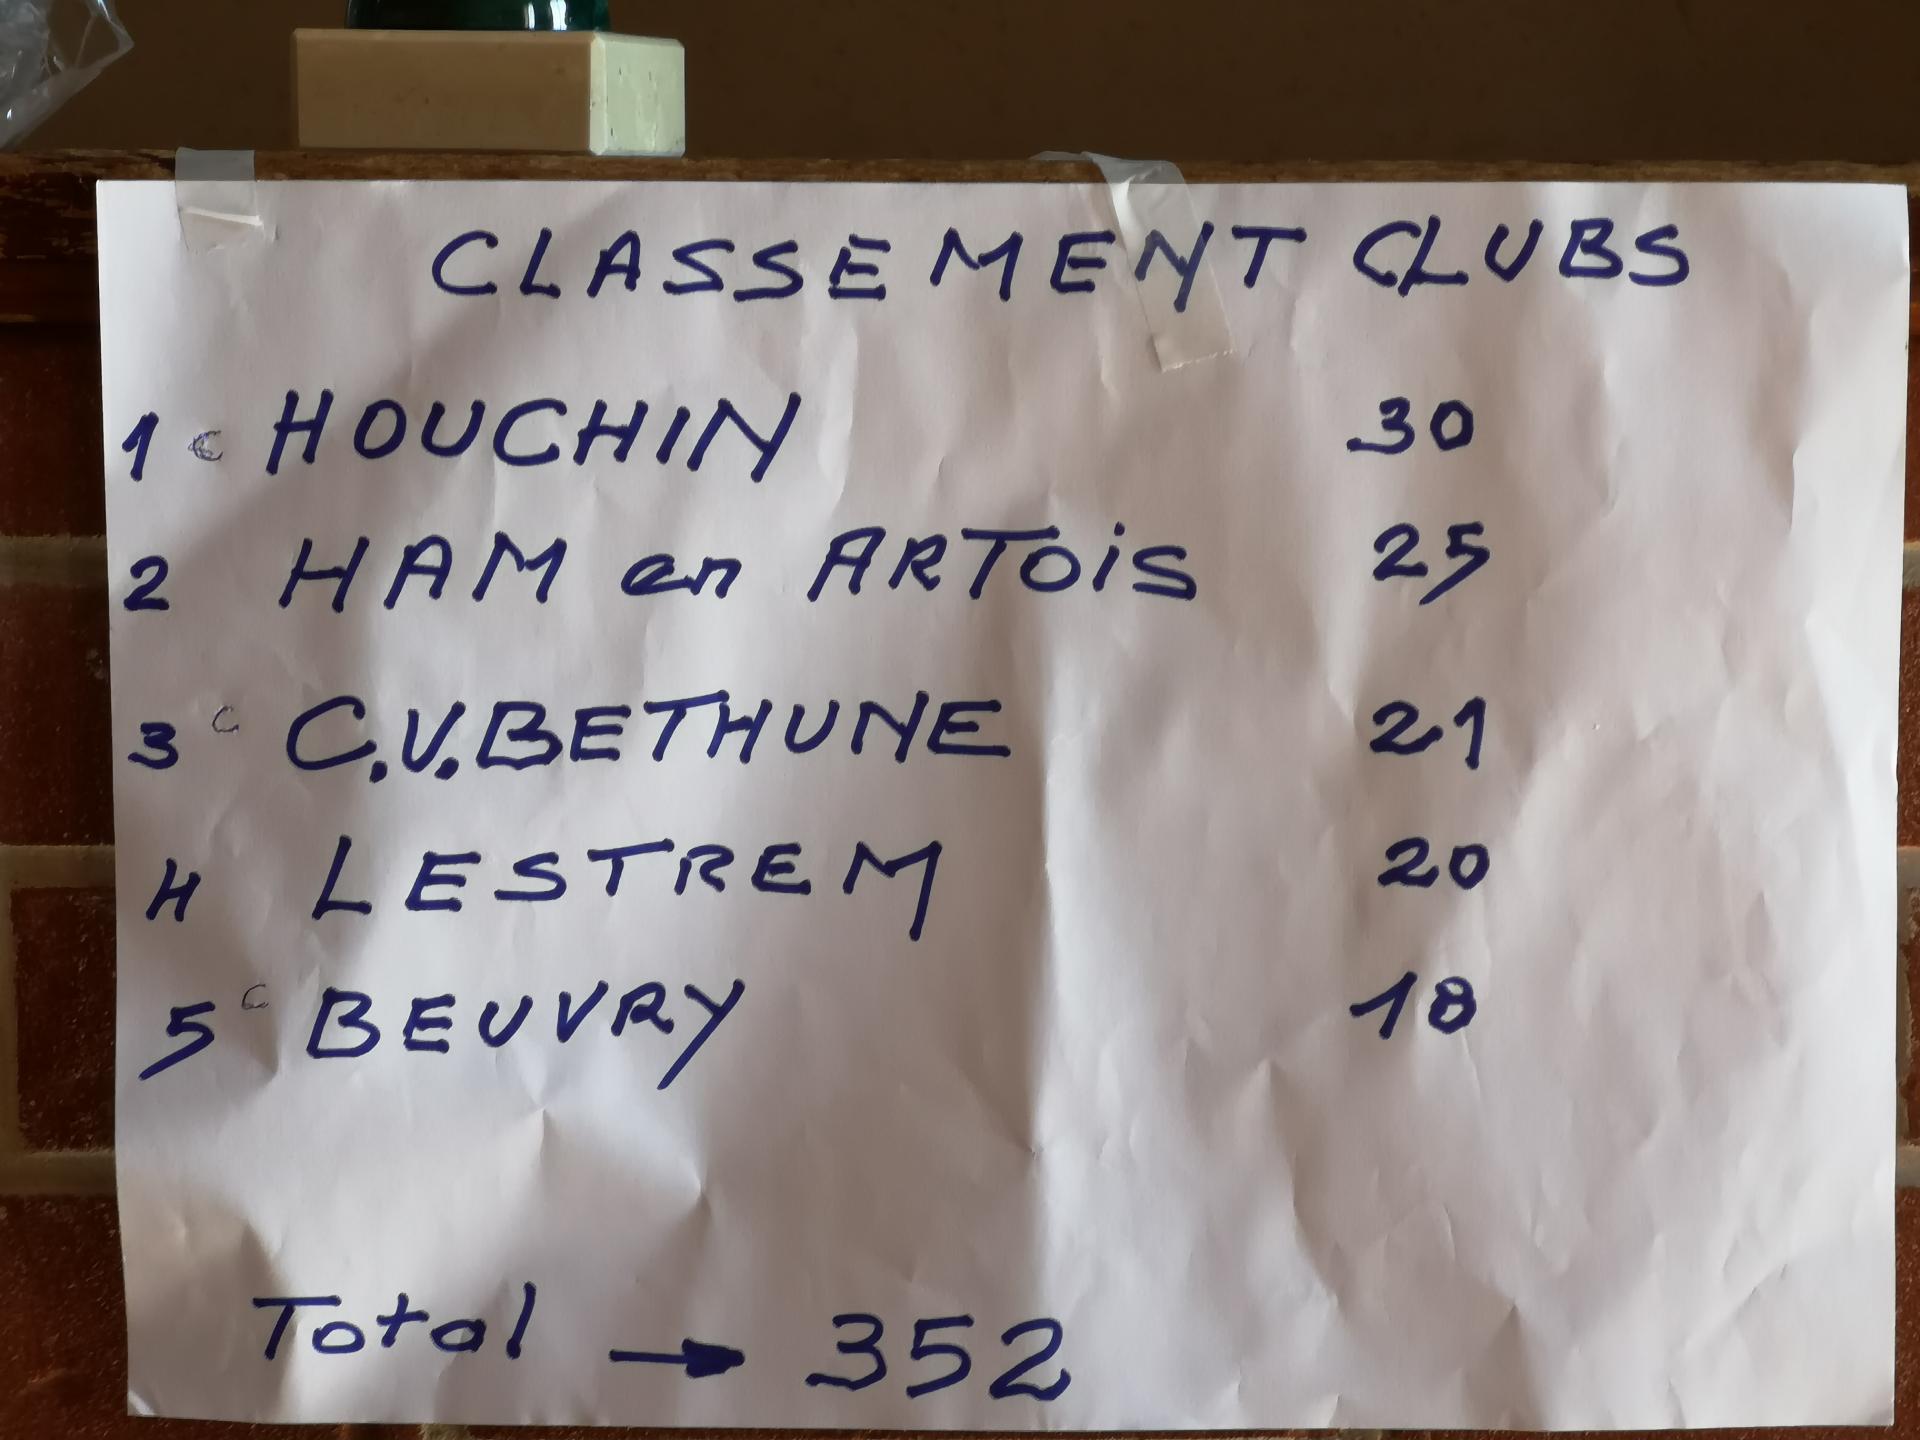 CLASSEMENT CLUBS
1 C HOUCHIN 30
2 HAM en ARTOiS 25
3 C C.V.BETHUNE 21
4 LESTREM 20
5 C BEUVRY 18
Total → 352